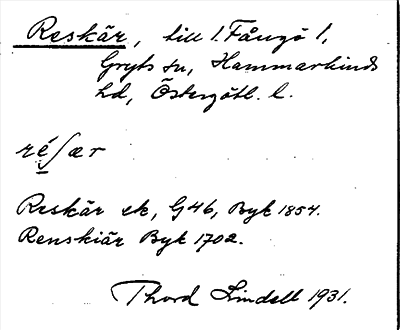 Reskär, till 1 Fångö 1,
Gryts sn, Hammarkinds
hd, Östergötl. l.
réʃær
Reskär ek, G46, Byk 1854.
Renskiär Byk 1702.
Thord Lindell 1931.